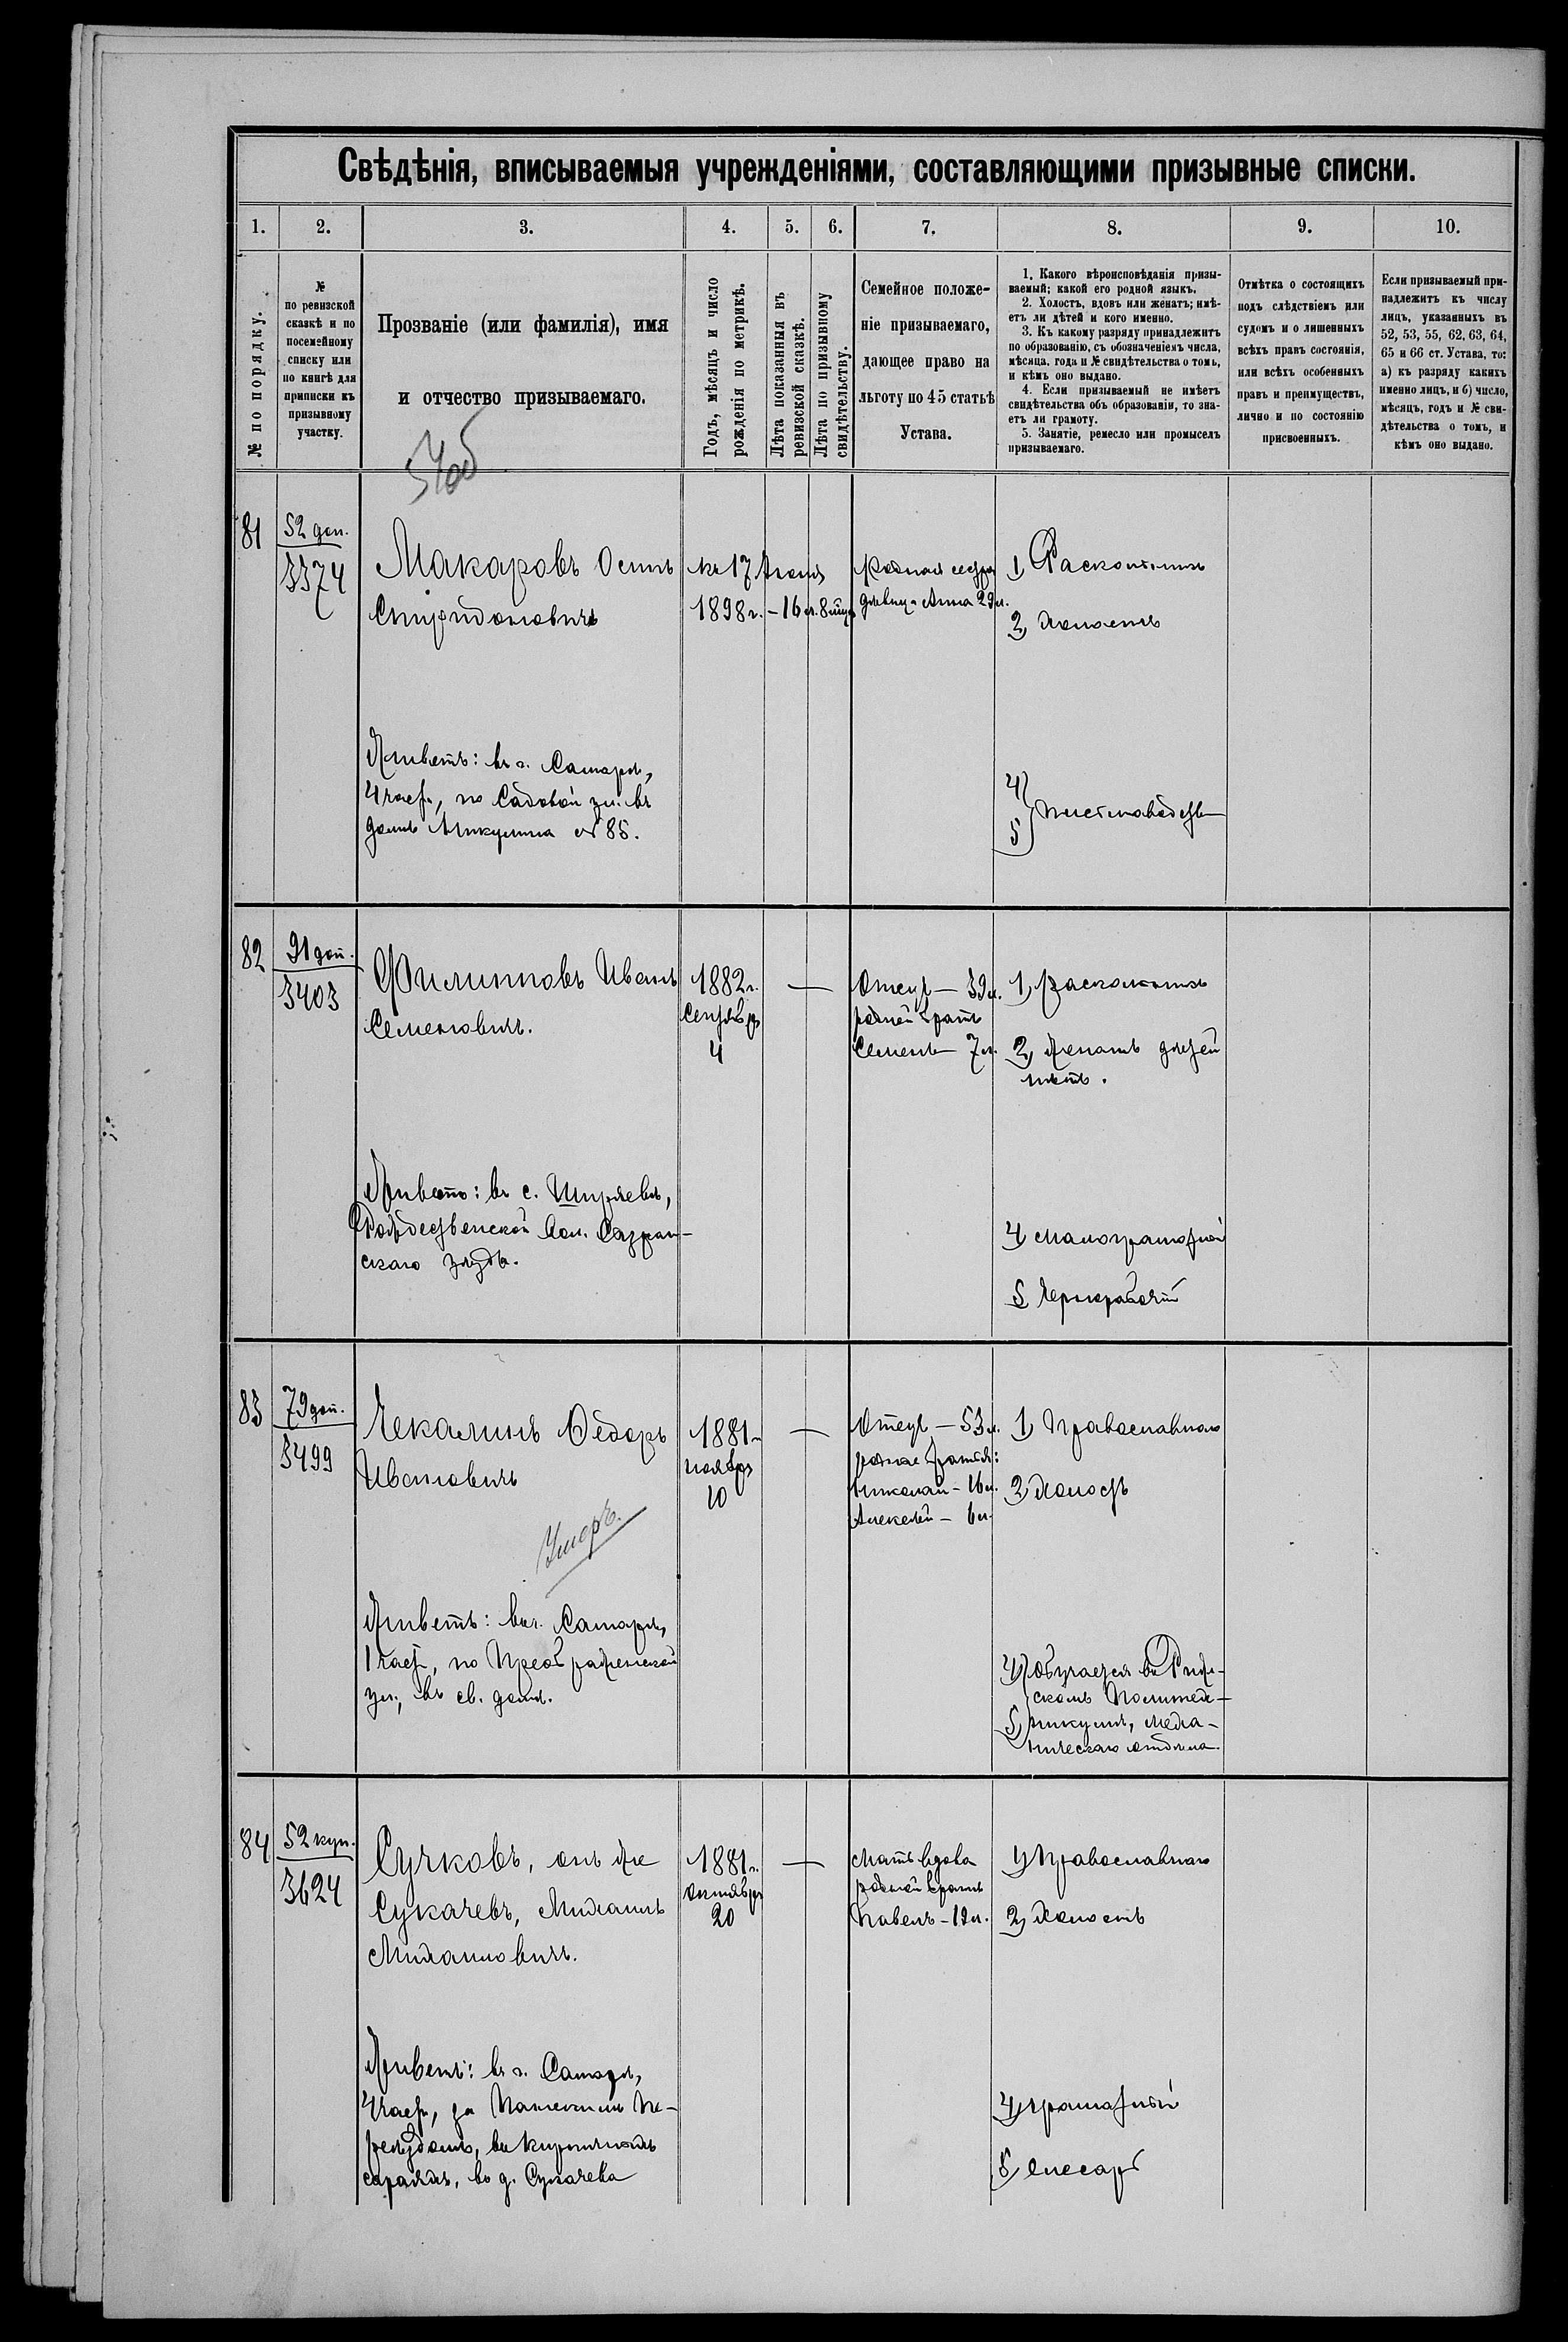 Свѣдѣнія, вписываемыя учрежденіями, составляющими призывные списки.
1. 2. 3. 4. 5. 6. 7. 8. 9. 10.
№ по порядку.
№
по ревизской
сказкѣ и по
посемейному
списку или
по книгѣ для
приписки къ
призывному
участку.
Прозваніе (или фамилія), имя
и отчество призываемаго.
Годъ, мѣсяцъ и число
рожденія по метрикѣ.
Лѣта показанныя въ
ревизской сказкѣ.
Лѣта по призывному
свидѣтельству.
Семейное положе-
ніе призываемаго,
дающее право на
льготу по 45 статьѣ
Устава.
1. Какого вѣроисповѣданія призы-
ваемый; какой его родной языкъ.
2. Холостъ, вдовъ или женатъ; имѣ-
етъ ли дѣтей и кого именно.
3. Къ какому разряду принадлежитъ
по образованію, съ обозначеніемъ числа,
мѣсяца, года и № свидѣтельства о томъ,
и кѣмъ оно выдано.
4. Если призываемый не имѣетъ
свидѣтельства объ образованіи, то зна-
етъ ли грамоту.
5. Занятіе, ремесло или промыселъ
призываемаго.
Отмѣтка о состоящихъ
подъ слѣдствіемъ или
судомъ и о лишенныхъ
всѣхъ правъ состоянія,
или всѣхъ особенныхъ
правъ и преимуществъ,
лично и по состоянію
присвоенныхъ.
Если призываемый при-
надлежитъ къ числу
лицъ, указанныхъ въ
52, 53, 55, 62, 63, 64,
65 и 66 ст. Устава, то:
а) къ разряду какихъ
именно лицъ, и б) число,
мѣсяцъ, годъ и № сви-
дѣтельства о томъ, и
кѣмъ оно выдано.
81
52 доп.
3374
Макаровъ Осипъ
Спиридоновичъ
Къ 17 Іюня
1898 г. - 16 л. 8 мѣс.
Родная сестра
дѣвица Анна 29 л.
1) Раскольникъ
2) Холостъ
Живетъ: въ г. Самарѣ,
4 част., по Садовой ул. въ
домѣ Микулина № 85.
4)
5)
Письмоводств.
82
91 доп.
3403
Филипповъ Иванъ
Семеновичъ.
1882 г.
Сентября
4
Отецъ — 39 л.
родной братъ
Семенъ — 7 л.
1) Раскольникъ
2) Женатъ дѣтей
нѣтъ.
Живетъ: въ с. Ширяевѣ,
Рождественской вол. Сызран-
скаго уѣзда.
4) Малограмотный
5) Чернорабочій
83
79 доп.
3499
Чекалинъ Ѳедоръ
Ивановичъ
Умеръ.
1881 г.
Ноября
10
Отецъ — 53 л.
родные братья:
Николай - 16 л.
Алексѣй — 6 л.
1) Православнаго
2) Холостъ
Живетъ: въ г. Самарѣ,
1 част., по Преображенской
ул., въ св. домѣ.
4) Обучается въ Риж-
скомъ Политех-
5) никумѣ, меха-
ническаго отдѣла.
84
52 куп.
3624
Сучковъ, онъ же
Сукачевъ, Михаилъ
Михаиловичъ.
1881 г.
Октября
20
Мать вдова
родной братъ
Павелъ - 19 л.
1) Православнаго
2) Холостъ
Живетъ: въ г. Самарѣ,
4 част., за
въ кирпичныхъ
сараяхъ, въ д. Сукачева
4) Грамотный
5) Слесарь